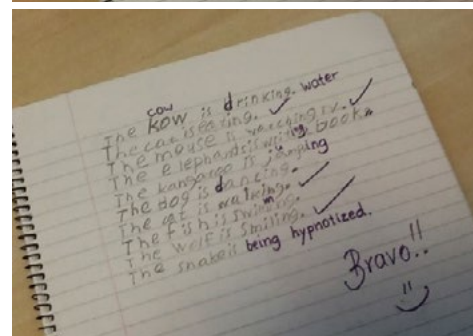 cow
The kow is drinking. water
The cat is eating.
The mouse is watching tv.
The elephand is writing books.
The kangaroo is jumping
The dog is dancing.
The cat is walking.
The fish is swiming.
The wolf is smiling.
The snake is being hypnotized.
Bravo!!